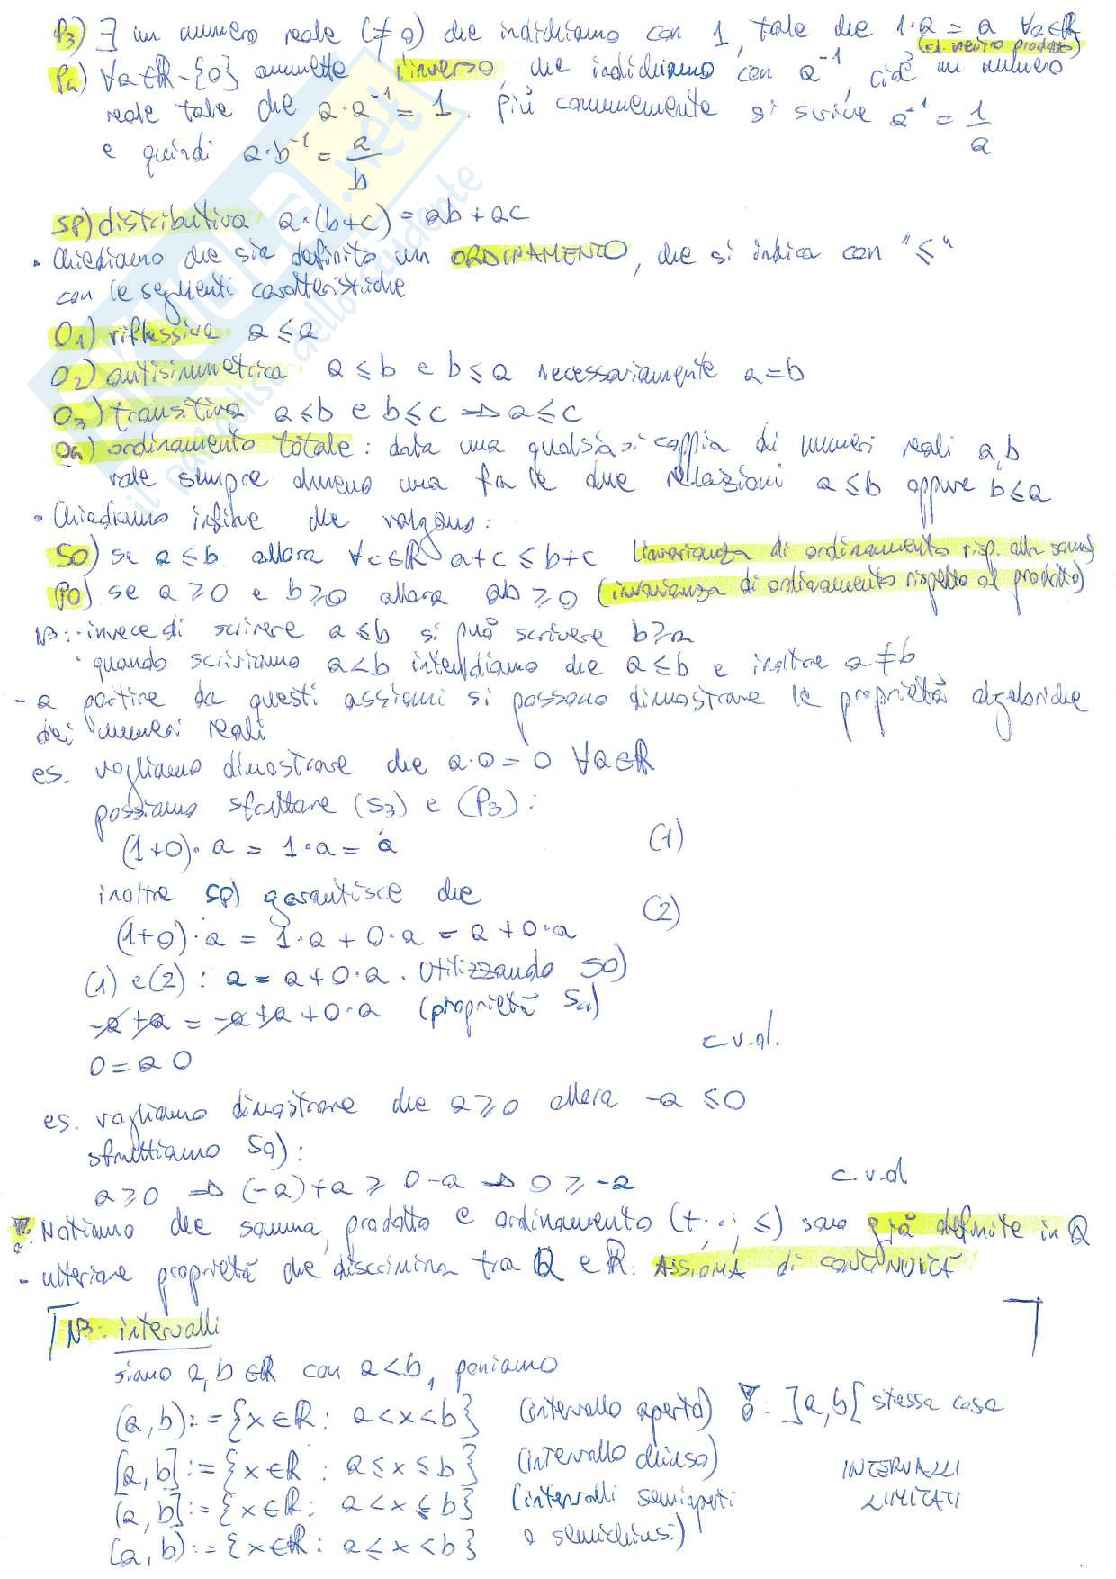 P3) ∃ un numero reale (≠ 0) che indichiamo con 1, tale che 1·a = a ∀a∈ℝ
(el. neutro prodotto)
P4) ∀a∈ℝ-{0} ammette l'inverso, che indichiamo con a⁻¹, cioè un numero
reale tale che a·a⁻¹ = 1. Più comunemente si scrive a⁻¹ = 1/a
e quindi a·b⁻¹ = a/b
SP) distributiva a·(b+c) = ab + ac
• Chiediamo che sia definito un ORDINAMENTO, che si indica con "≤"
con le seguenti caratteristiche
O1) riflessiva a ≤ a
O2) antisimmetrica a ≤ b e b ≤ a necessariamente a = b
O3) transitiva a ≤ b e b ≤ c ⇒ a ≤ c
O4) ordinamento totale: data una qualsiasi coppia di numeri reali a,b
vale sempre almeno una fra le due relazioni a ≤ b oppure b ≤ a
• Chiediamo infine che valgono:
SO) se a ≤ b allora ∀c∈ℝ a+c ≤ b+c (invarianza di ordinamento risp. alla somma)
PO) se a ⩾ 0 e b ⩾ 0 allora ab ⩾ 0 (invarianza di ordinamento rispetto al prodotto)
NB: · invece di scrivere a ≤ b si può scrivere b ⩾ a
· quando scriviamo a < b intendiamo che a ≤ b e inoltre a ≠ b
- a partire da questi assiomi si possono dimostrare le proprietà algebriche
dei numeri reali
es. vogliamo dimostrare che a·0 = 0 ∀a∈ℝ
possiamo sfruttare (S3) e (P3):
(1+0)·a = 1·a = a (1)
inoltre SP) garantisce che
(1+0)·a = 1·a + 0·a = a + 0·a (2)
(1) e (2): a = a + 0·a. Utilizzando SO)
-a + a = -a + a + 0·a (proprietà S4)
0 = a 0 c.v.d.
es. vogliamo dimostrare che a ⩾ 0 allora -a ≤ 0
sfruttiamo SO):
a ⩾ 0 ⇒ (-a)+a ⩾ 0-a ⇒ 0 ⩾ -a c.v.d
Notiamo che somma, prodotto e ordinamento (+; ·; ≤) sono già definite in ℚ
- ulteriore proprietà che discrimina tra ℚ e ℝ: ASSIOMA di CONTINUITÀ
NB: intervalli
siano a,b ∈ℝ con a < b, poniamo
(a,b) := {x∈ℝ: a < x < b} (intervallo aperto) : ]a,b[ stessa cosa
[a,b] := {x∈ℝ: a ≤ x ≤ b} (intervallo chiuso) INTERVALLI
(a,b] := {x∈ℝ: a < x ≤ b} (intervalli semiaperti LIMITATI
[a,b) := {x∈ℝ: a ≤ x < b} o semichiusi)